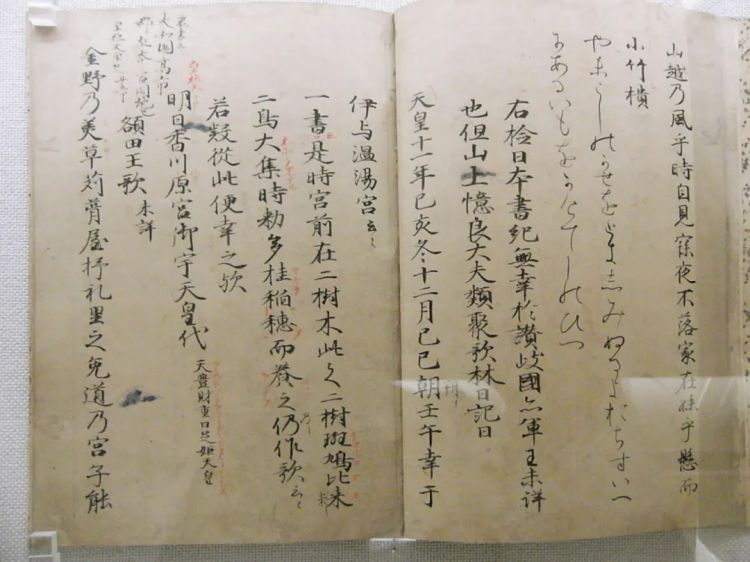 山越乃風乎時自見寐夜不落家在妹乎懸而
小竹櫃
やまこしのかせをときしみぬるよおちすいへ
にあるいもをかけてしのひつ
右撿日本書紀無幸於讃岐國亦軍王未詳
也但山上憶良大夫類聚歌林日記曰
天皇十一年己亥冬十二月己巳朝壬午幸于
伊与温湯宮云々
一書是時宮前在二樹木此之二樹斑鳩比来
二鳥大集時勅多桂稲穂而養之仍作歌云々
若疑從此便幸之歟
明日香川原宮御宇天皇代 天豊財重日足姫天皇
額田王歌 未詳
金野乃美草苅葺屋杼礼里之兎道乃宮子能